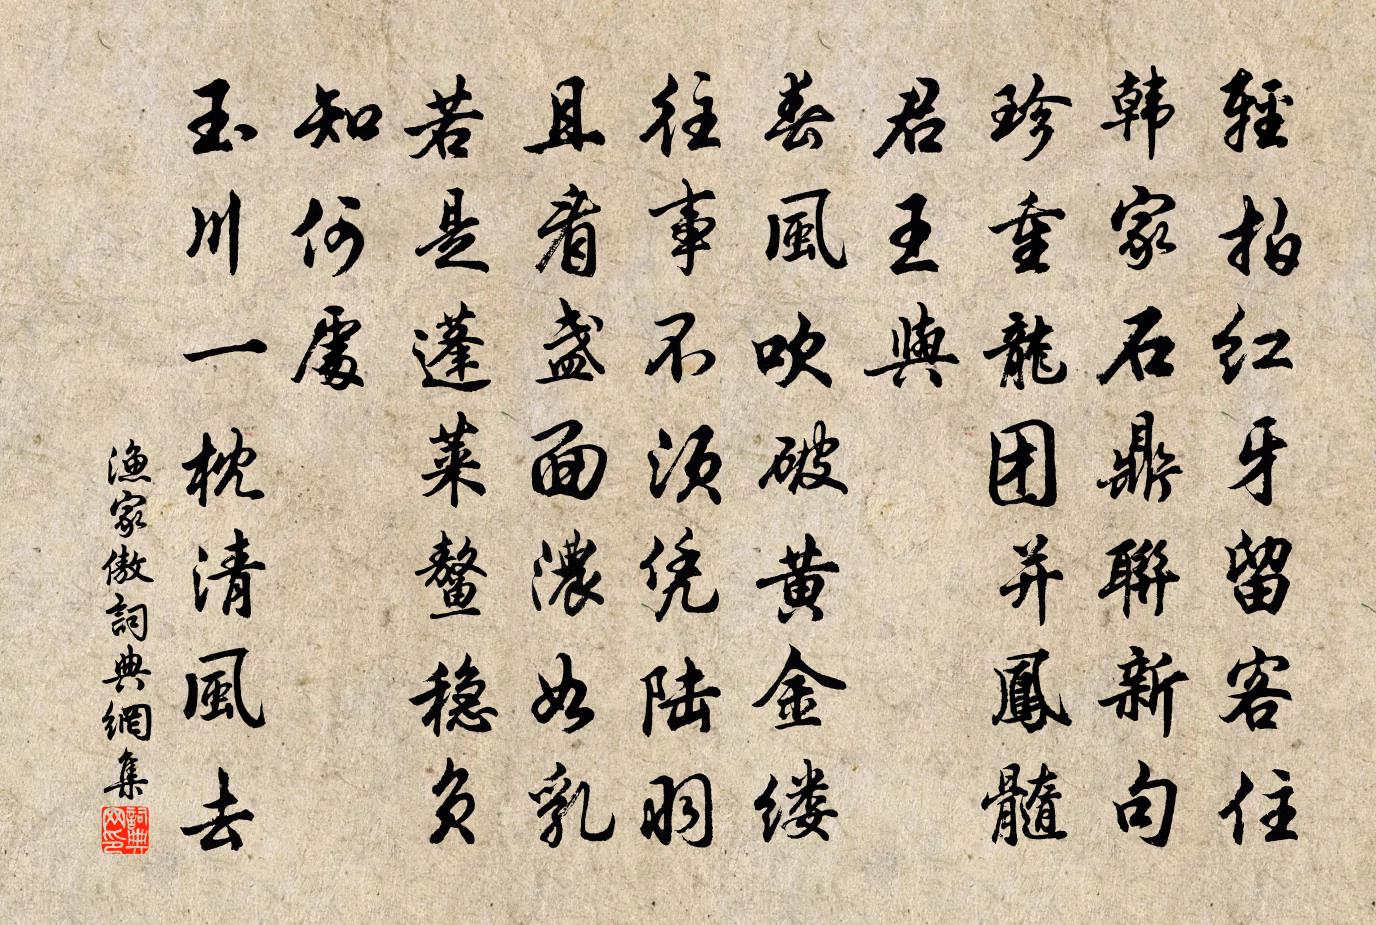 輕拍紅牙留客住
韩家石鼎聯新句
珍重龍团并鳳髓
君王與
春風吹破黄金缕
往事不须凭陆羽
且看盏面濃如乳
若是蓬莱鳌稳负
知何處
玉川一枕清風去
漁家傲詞典網集
詞典網印